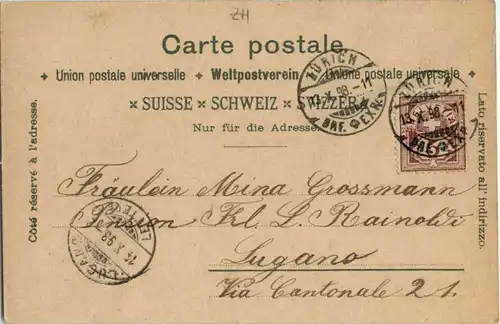 ZH
Carte postale.
Union postale universelle Weltpostverein Unione postale universale
SUISSE SCHWEIZ SVIZZERA
Nur für die Adresse.
Côté réservé à l'adresse.
Lato riservato all' indirizzo.
ZÜRICH
13.X.98.-11
BRF.EXP.
ZÜRICH
13.X.98.-11
BRF.EXP.
Fräulein Mina Grossmann
Pension Frl. L. Rainoldi
Lugano
Via Cantonale 21.
LUGANO
14.X.98
LETTERE